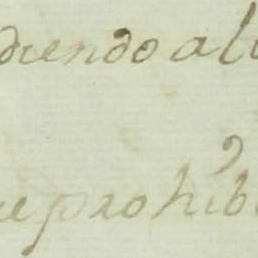 diendo al
e prohib